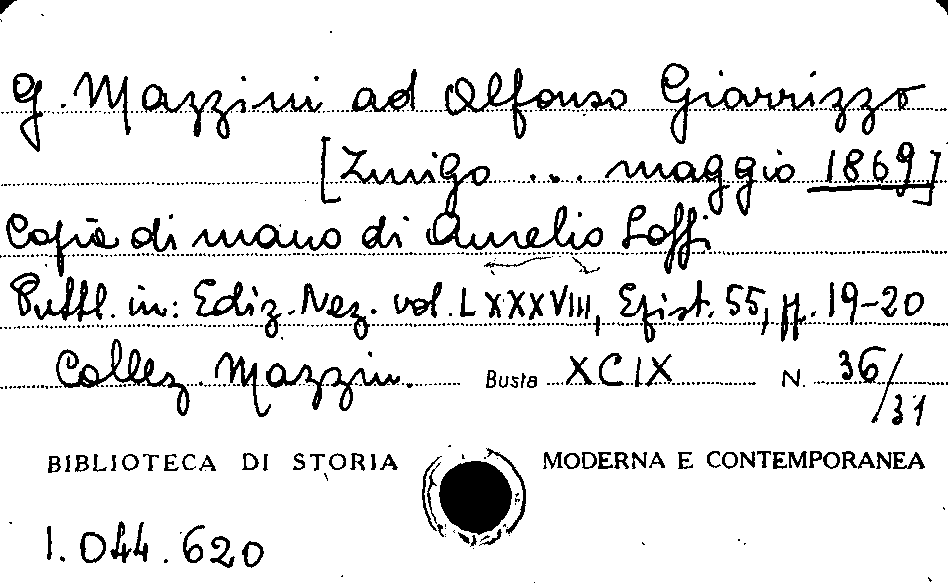 G. Mazzini ad Alfonso Giarrizzo
[Zurigo ... maggio 1869]
Copia di mano di Aurelio Saffi
Pubbl. in: Ediz. Naz. vol. LXXXVIII, Epist. 55, pp. 19-20
Collez. Mazzin. Busta XCIX N. 36/31
BIBLIOTECA DI STORIA MODERNA E CONTEMPORANEA
1.044.620